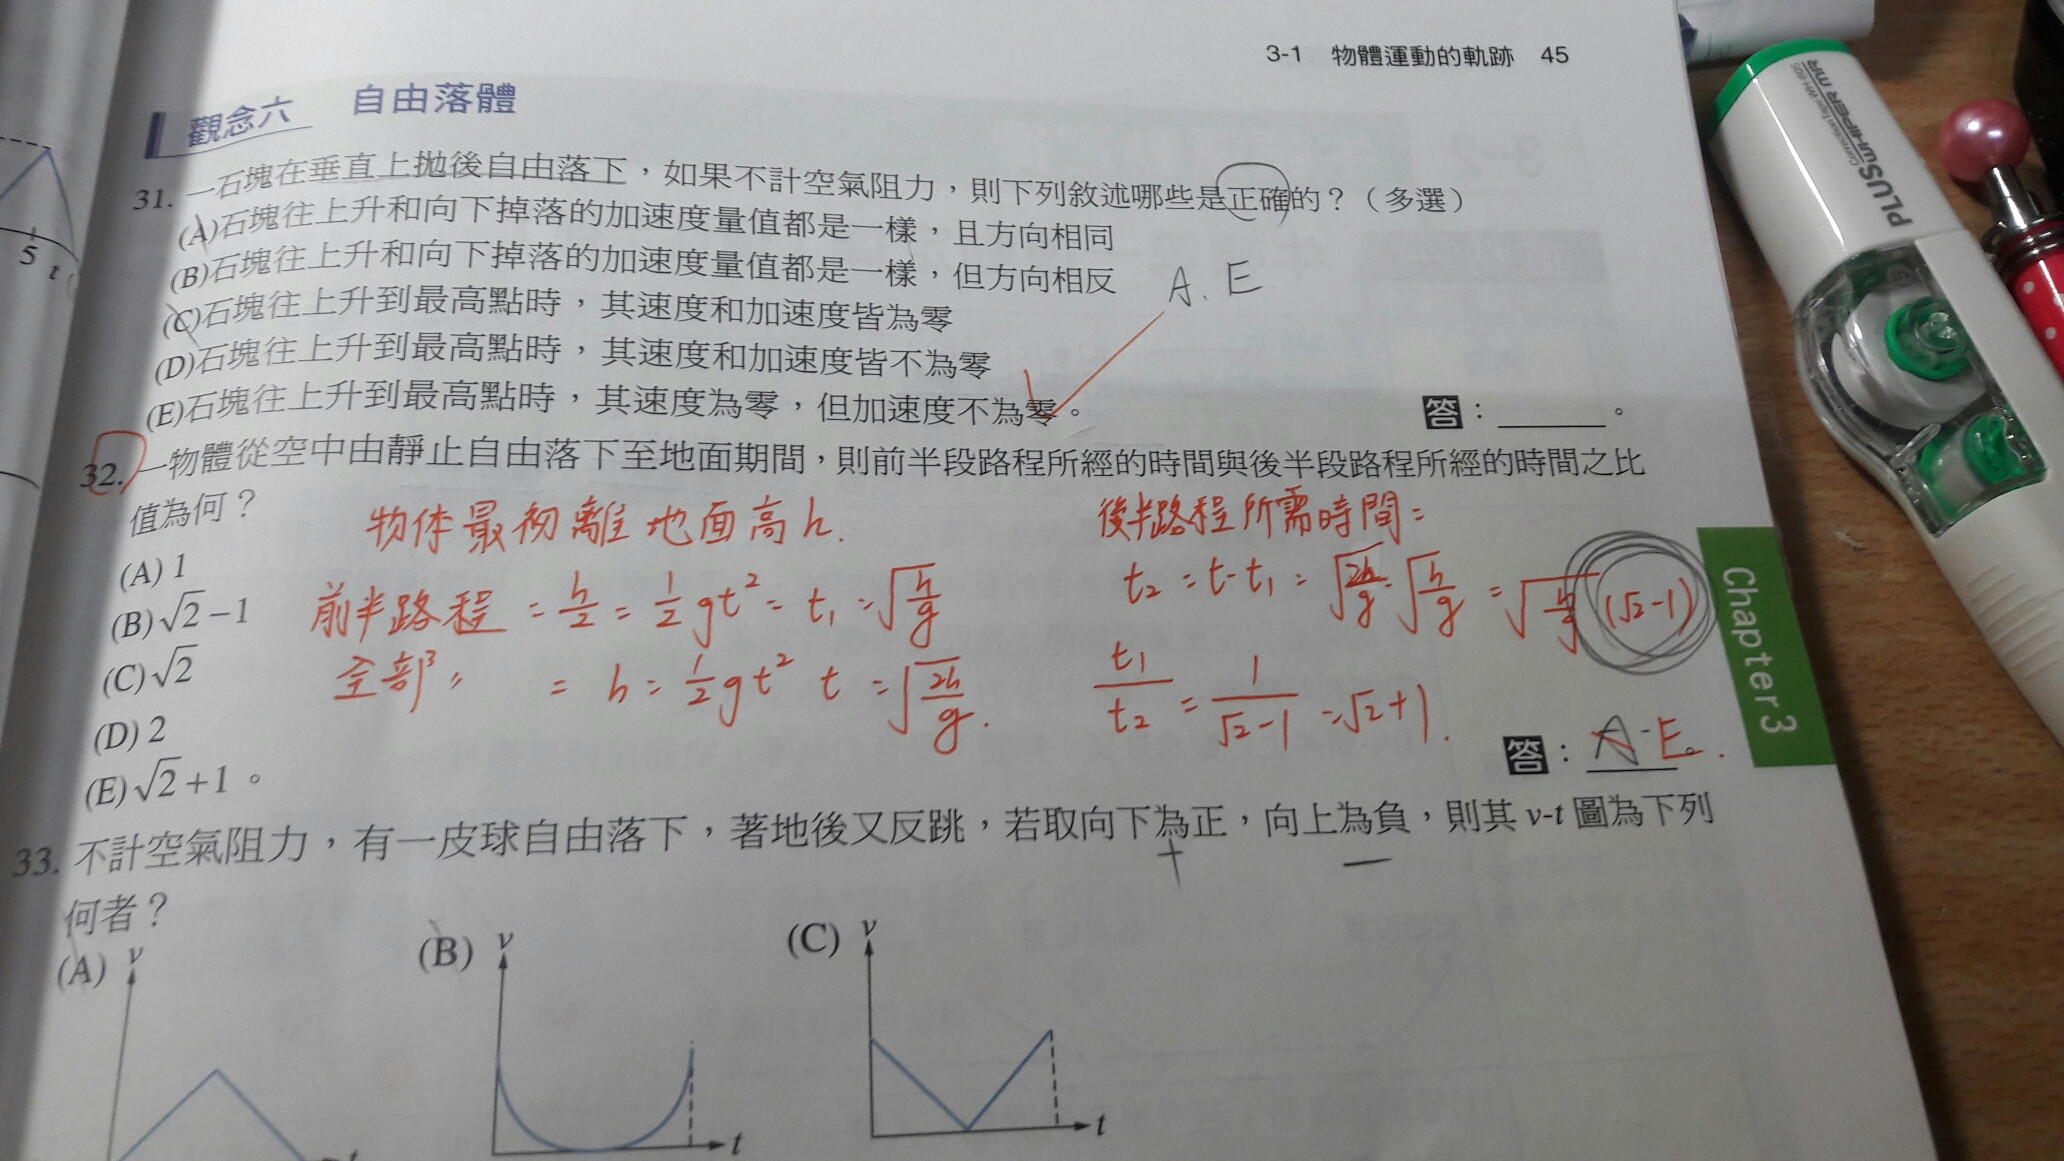 3-1 物體運動的軌跡 45
觀念六 自由落體
31. 一石塊在垂直上拋後自由落下,如果不計空氣阻力,則下列敘述哪些是正確的?(多選)
(A)石塊往上升和向下掉落的加速度量值都是一樣,且方向相同
(B)石塊往上升和向下掉落的加速度量值都是一樣,但方向相反
A. E
(C)石塊往上升到最高點時,其速度和加速度皆為零
(D)石塊往上升到最高點時,其速度和加速度皆不為零
(E)石塊往上升到最高點時,其速度為零,但加速度不為零。
答:______。
32. 一物體從空中由靜止自由落下至地面期間,則前半段路程所經的時間與後半段路程所經的時間之比
值為何?
物体最初離地面高h.
後半路程所需時間:
(A) 1
(B) √2-1
前半路程 = h/2 = 1/2 gt² = t₁ = √(h/g)
t₂ = t-t₁ = √(2h/g) - √(h/g) = √(h/g) (√2-1)
(C) √2
全部〃 = h = 1/2 gt² t = √(2h/g).
t₁/t₂ = 1/(√2-1) = √2+1.
(D) 2
答: A E。
(E) √2+1。
33. 不計空氣阻力,有一皮球自由落下,著地後又反跳,若取向下為正,向上為負,則其 v-t 圖為下列
+ −
何者?
(A) v t
(B) v t
(C) v t
Chapter 3
5 t
PLUS
WHIPER MR
Correction Tape WH-605